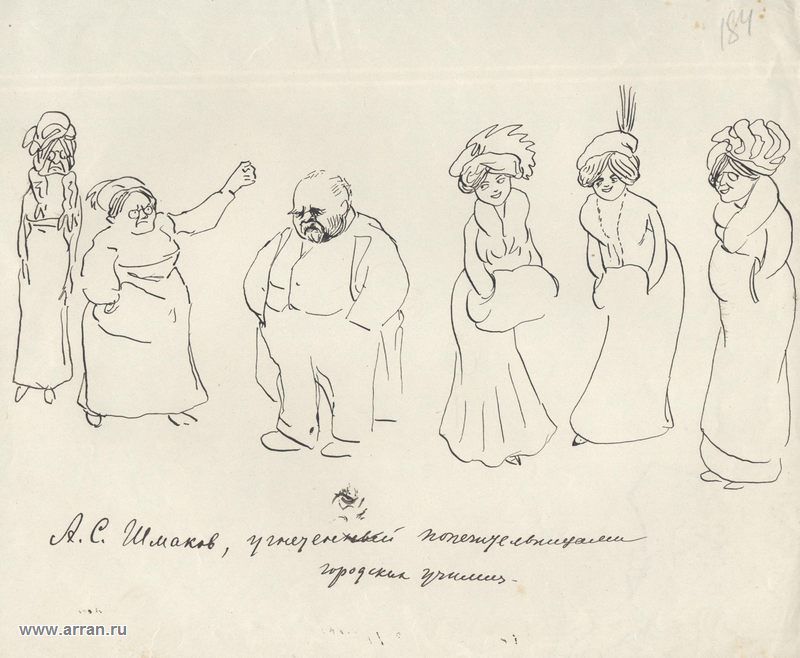 184
А. С. Шмаков, угнетенный попечительницами
городских училищ.
www.arran.ru